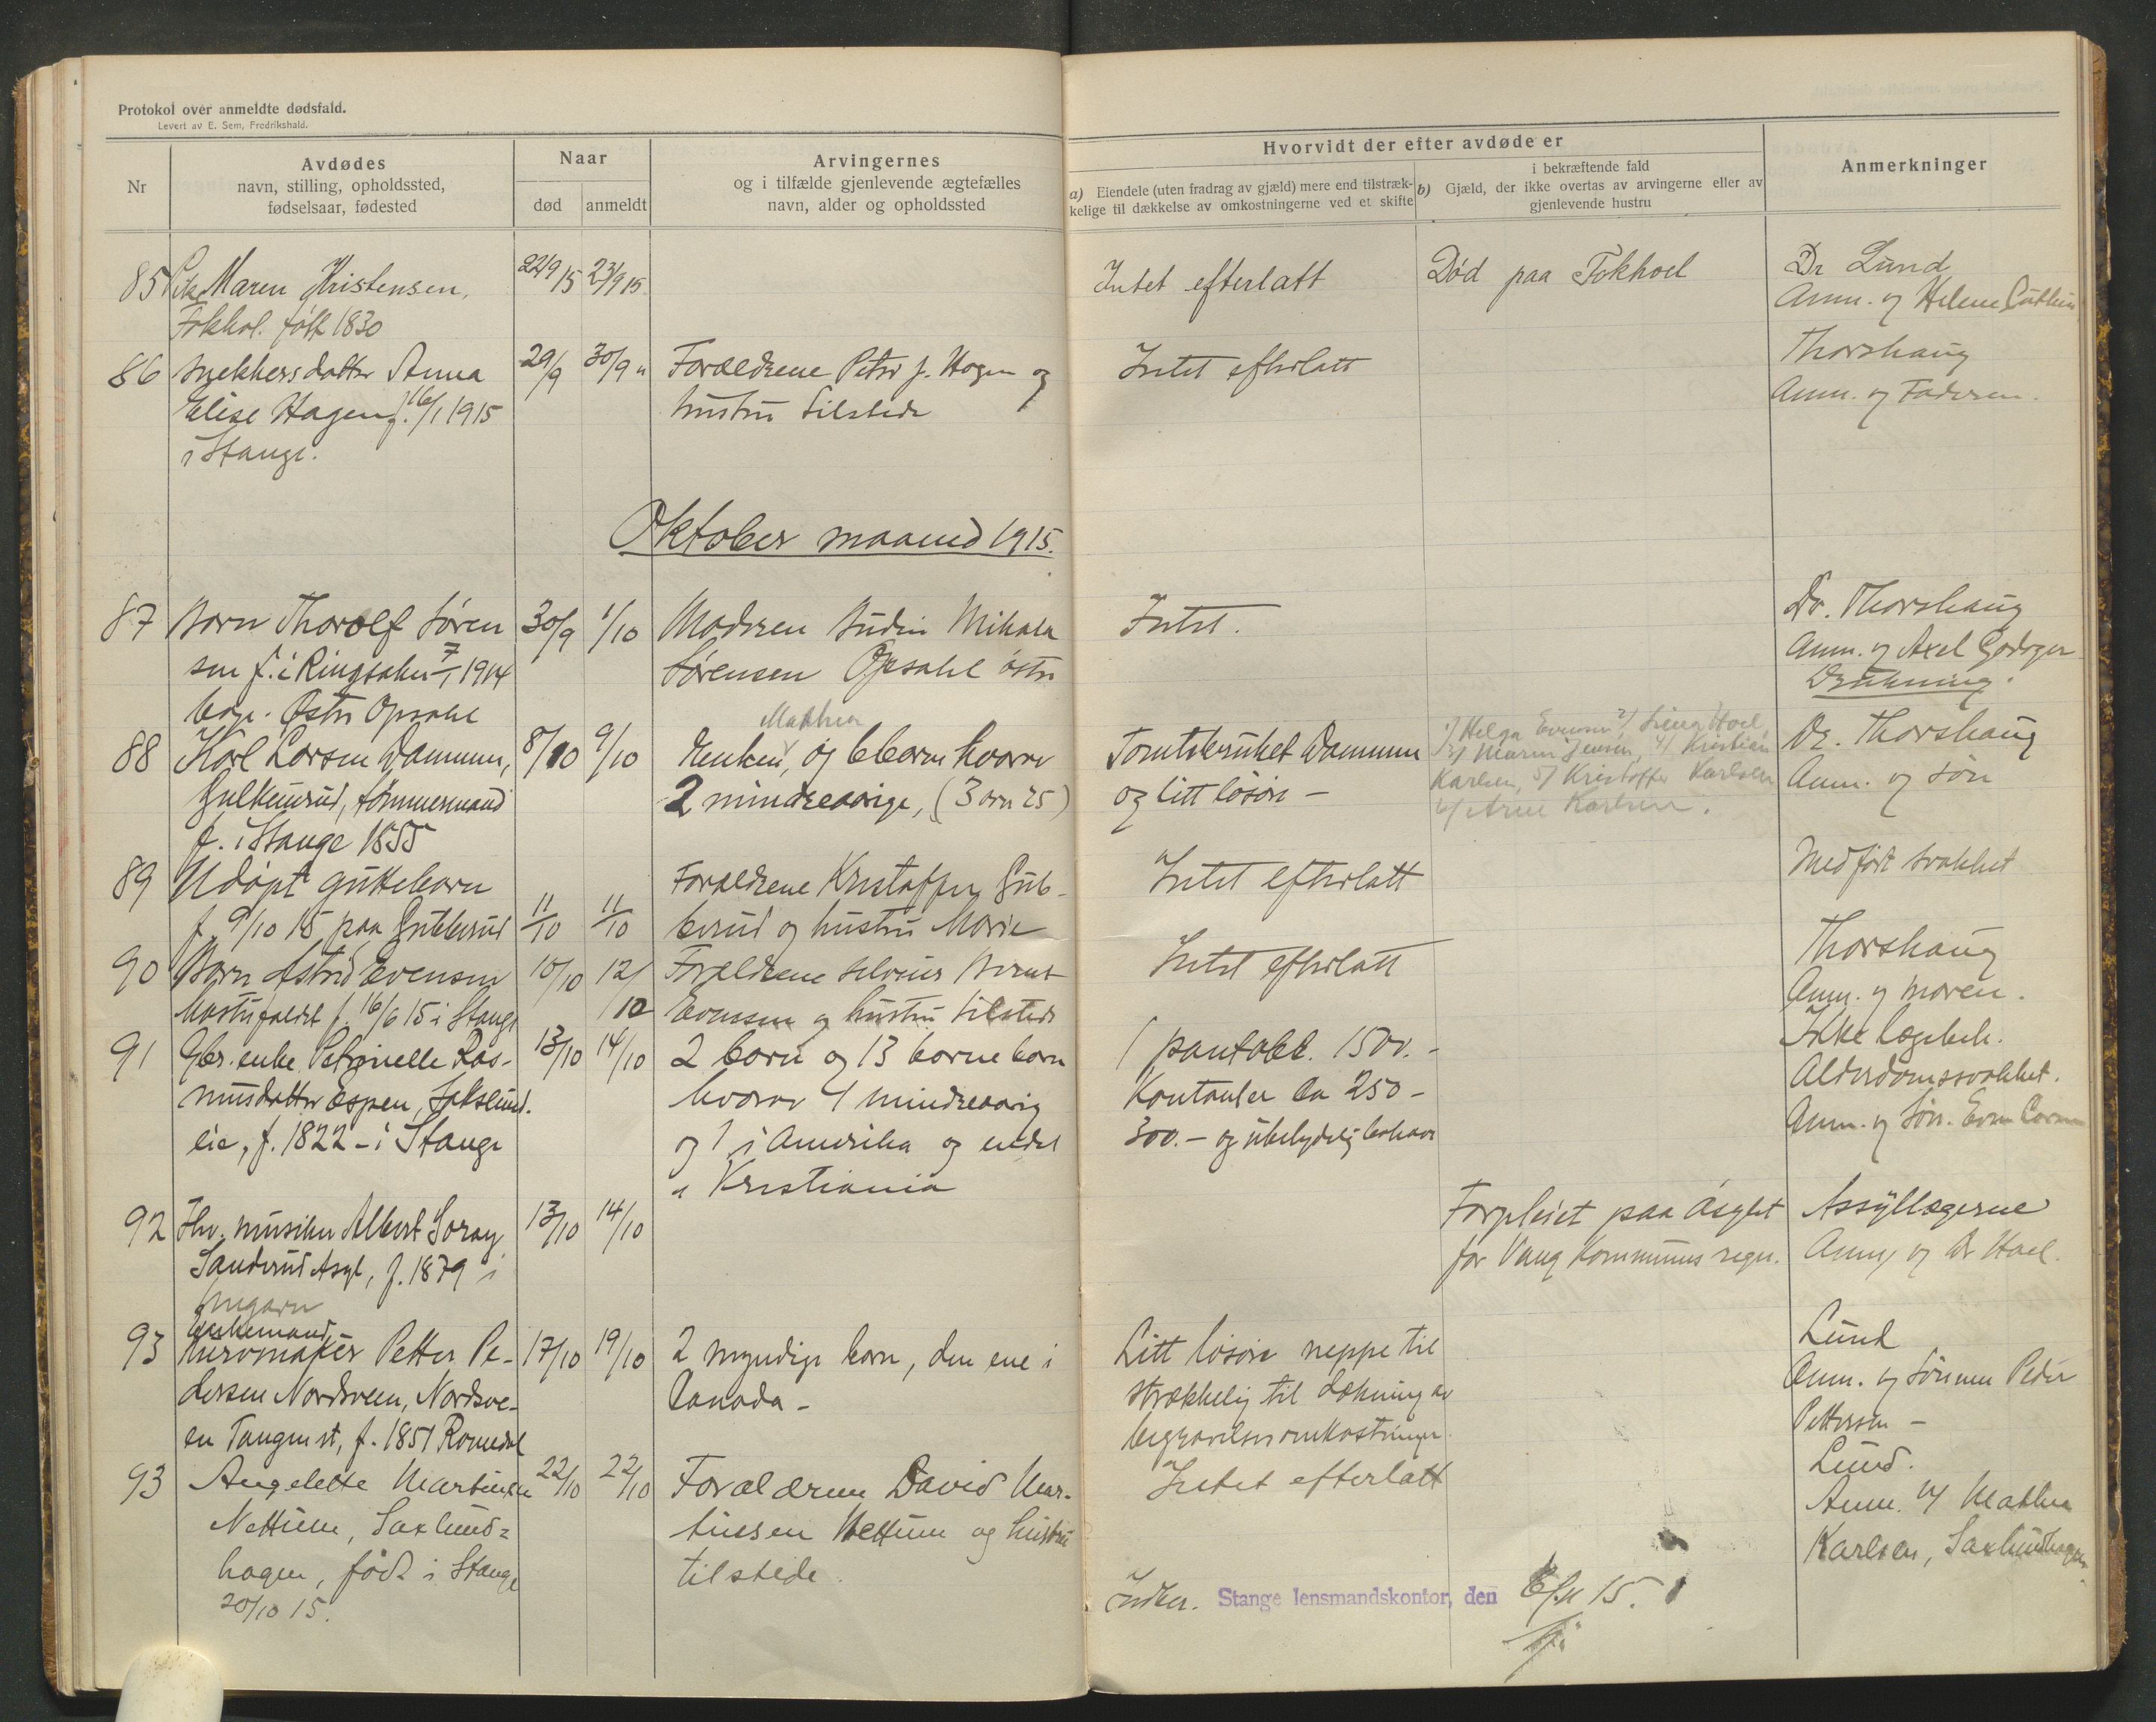 Protokol over anmeldte dødsfald.
Levert av E. Sem, Fredrikshald.
Nr
Avdødes
navn, stilling, opholdssted,
fødselsaar, fødested
Naar
død
anmeldt
Arvingernes
og i tilfælde gjenlevende ægtefælles
navn, alder og opholdssted
Hvorvidt der efter avdøde er
a) Eiendele (uten fradrag av gjæld) mere end tilstræk-
kelige til dækkelse av omkostningerne ved et skifte
i bekræftende fald
b) Gjæld, der ikke overtas av arvingerne eller av
gjenlevende hustru
Anmerkninger
85 Pike Maren Kristensen,
Fokhol. født 1830
22/9 15
23/9 15
Intet efterlatt
Død paa Fokhoel
Dr Lund
Anm. og Helene
86 Snekkersdatter Anna
Elise Hagen f. 16/1 1915
i Stange.
29/9
30/9 "
Forældrene Peter J. Hagen og
hustru tilstede
Intet efterlatt
Thorshaug
Anm. og Faderen.
Oktober maaned 1915.
87 Barn Thorolf Søren
sen f. i Ringsaker 7/1 1914
Østre Opsahl
30/9
1/10
Moderen Mikala
Sørensen Opsahl østre
Intet.
Dr. Thorshaug
Anm. og Axel
Drukning.
88 Karl Larsen Dammen,
Gulkuurud, tømmermand
f. i Stange 1855
8/10
9/10
Mathea
Enken, og 6 barn hvorav
2 mindreaarige, (3 over 25)
Tomtebruket Dammen
og litt løsøre -
1/ Helga Evensen 2/ Hoel,
3/ Maren Jensen, 4/ Kristian
Karlsen, 5/ Kristoffer Karlsen
6/ Arne Karlsen.
Dr. Thorshaug
Anm. og søn
89 Udøpt guttebarn
f. 9/10 15 paa Gubberud
11/10
11/10
Forældrene Kristoffer Gub-
berud og hustru Marie
Intet efterlatt
Medført svakhet
90 Barn Astrid Evensen
f. 16/6 15 i Stange
10/10
12/10
Forældrene Bernt
Evensen og hustru tilstede
Intet efterlatt
Thorshaug
Anm. og moren.
91 Gbr. enke Petronelle Ras-
musdatter Espen, Sakslund.
eie, f. 1822 - i Stange
13/10
14/10
2 barn og 13 barnebarn
hvorav 4 mindreaarig
og 1 i Amerika og endel
i Kristiania
1 pantobl. 1500.-
Kontanter ca 250 -
300.- og ubetydelig
Ikke lægebeh.
Alderdomssvakhet.
Anm. og søn. Even
92 Fhv. musiker Albert Soray
Sanderud Asyl, f. 1879 i
Ungarn
13/10
14/10
Forpleiet paa Asylet
for Vang Kommunes regn.
Assyllægerne
Anm. og Dr Hoel.
93
Petter Pe-
dersen Nordsveen, Nordsve-
en Tangen st, f. 1851 Romedal
17/10
19/10
2 myndige barn, den ene i
Canada -
Litt løsøre neppe til
strækkelig til dækning av
begravelsesomkostninger.
Lund
Anm. og sønnen Peder
Pettersen -
93 Angelette Martinsen
Nettum, Saxlund=
hagen, født i Stange
20/10 15.
22/10
22/10
Forældrene David Mar-
tinsen Nettum og hustru
tilstede.
Intet efterlatt
Lund.
Anm. og Mathea
Karlsen, Saxlundhagen.
Indber. Stange lensmandskontor, den